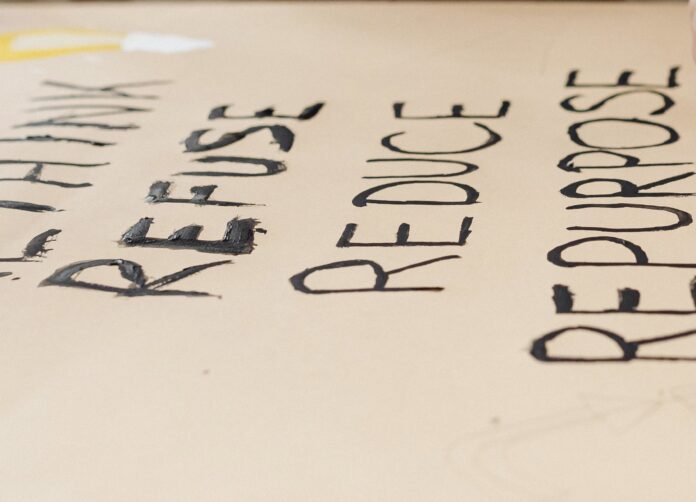 RETHINK
REFUSE
REDUCE
REPURPOSE